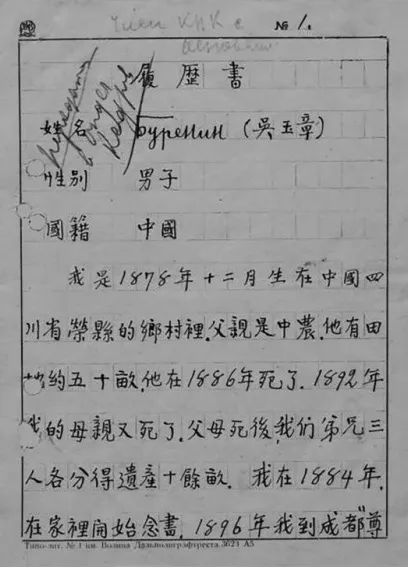 Член ККК с
№ 1.
履歷書
姓名 Буренин (吳玉章)
性別 男子
國籍 中國
我是1878年十二月生在中國四
川省榮縣的鄉村裡.父親是中農.他有田
地約五十畝.他在1886年死了.1892年
我的母親又死了.父母死後,我们弟兄三
人各分得遺產十餘畝. 我在1884年.
在家裡開始念書.1896年我到成都"尊
Типо-лит. № 1 им. Волина Дальполиграфтреста. 3624 А5